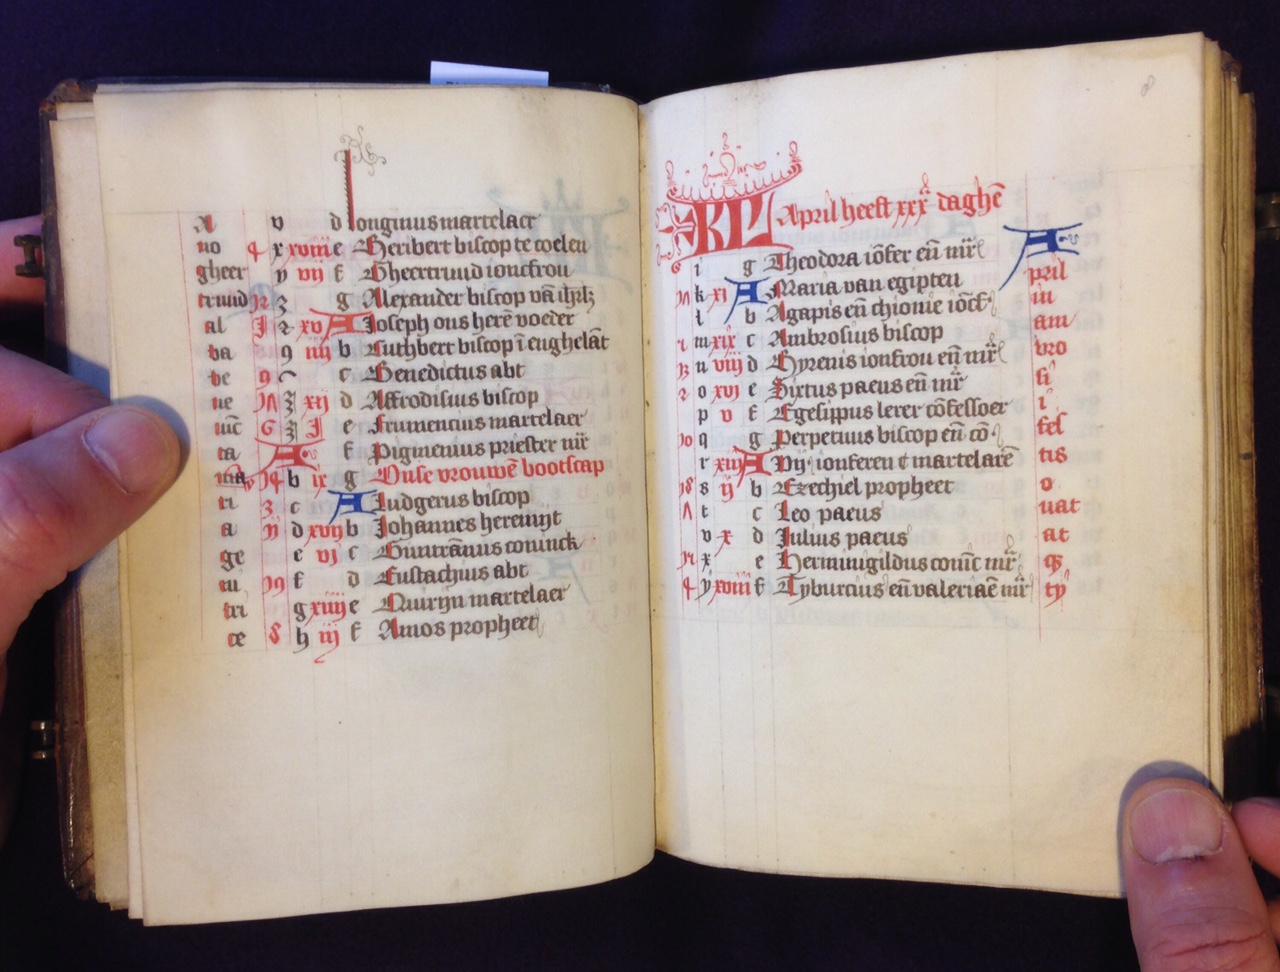 A v d Longinus martelaer
no q x xviii e Heribert biscop te coelen
gheer y vii f Gheertruud ioncfrou
truud z g Alexander biscop
al xv A Joseph ons herē voeder
ba 9 iiij b Cuthbert biscop ī enghelāt
be c Benedictus abt
ne xij d Affrodisius biscop
e Frumencius martelaer
ta A f Pigmenius priester mr̄
b ix g Onse vrouwē bootscap
ti z c A Ludgerus biscop
a d xvij b Johannes heremijt
ge e vi c Guntrānus coninck
tu f d Eustachius abt
tri g xiiij e Quirijn martelaer
ce h iij f Amos propheet
KL April heeft xxx daghē
i g Theodora iōfer eñ mr̄ A
k xi A Maria van egipten pril
l b Agapis eñ chionie in
m xix c Ambrosius biscop am
n viij d Hyrenis ionfrou eñ mr̄ bro
o xvj e Sixtus paeus eñ mr̄ si
p v f Egesippus lerer cōfessoer i
q g Perpetuus biscop eñ cō fes
r xiij A Vij ionferen martelarē tis
s ij b Ezechiel propheet o
t c Leo paeus uat
v x d Julius paeus at
x e Herminigildus conīc mr̄
y xviii f Tyburcius eñ valeriaē mr̄ ty